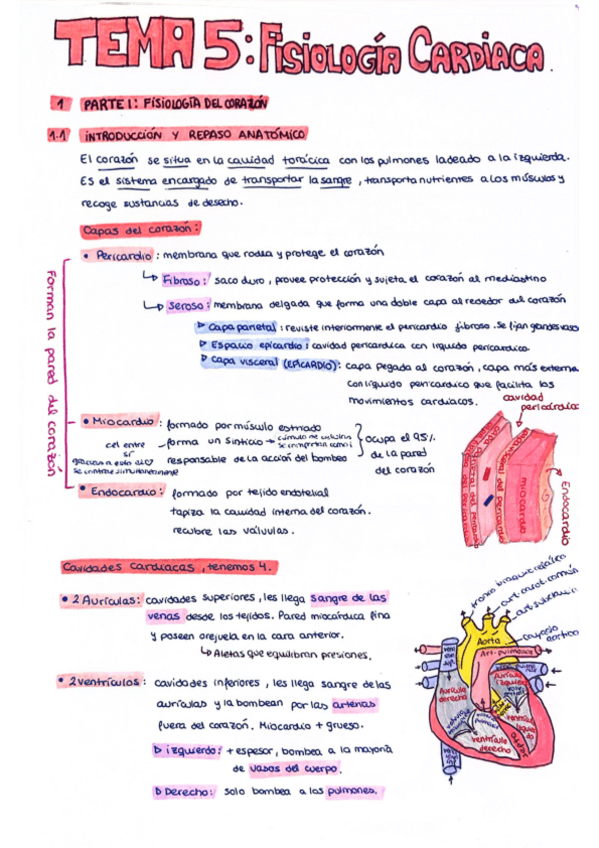 TEMA 5: FISIOLOGÍA CARDIACA.
1 PARTE 1: FISIOLOGÍA DEL CORAZÓN
1.1 INTRODUCCIÓN Y REPASO ANATÓMICO
El corazón se situa en la cavidad torácica con los pulmones ladeado a la izquierda.
Es el sistema encargado de transportar la sangre, transporta nutrientes a los músculos y
recoge sustancias de desecho.
Capas del corazón:
• Pericardio: membrana que rodea y protege el corazón
↳ Fibroso: saco duro, provee protección y sujeta el corazón al mediastino
↳ Seroso: membrana delgada que forma una doble capa alrededor del corazón
▷ Capa parietal: reviste interiormente el pericardio fibroso. Se fijan grandes vasos
▷ Espacio epicardio: cavidad pericardica con líquido pericardico.
▷ Capa visceral (EPICARDIO): capa pegada al corazón, capa más externa
con líquido pericardico que facilita los
movimientos cardiacos.
• Miocardio: formado por músculo estriado
forma un sinticio → cúmulo de células se comportan como 1
responsable de la acción del bombeo
ocupa el 95%
de la pared
del corazón
cel entre
sí
gracias a esto el
simultaneamente
• Endocardio: formado por tejido endotelial
tapiza la cavidad interna del corazón.
recubre las válvulas.
Forman la pared del corazón
cavidad
pericárdica
miocardio
Endocardio
Cavidades cardiacas, tenemos 4.
• 2 Aurículas: cavidades superiores, les llega sangre de las
venas desde los tejidos. Pared miocárdica fina
y poseen orejuela en la cara anterior.
↳ Aletas que equilibran presiones.
• 2 ventrículos: cavidades inferiores, les llega sangre de las
aurículas y la bombean por las arterias
fuera del corazón. Miocardio + grueso.
▷ izquierdo: + espesor, bombea a la mayoría
de vasos del cuerpo.
▷ Derecho: solo bombea a los pulmones.
tronco braquiocefálico
art. carot. común
cayado
aortico
Aorta
Art. pulmonar
Aurícula
izquierda
Aurícula
derecha
ventrículo
derecho